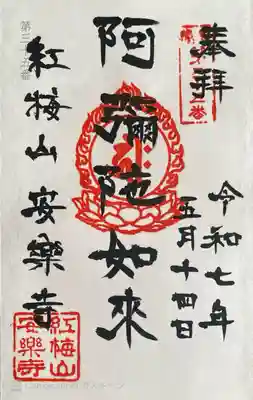 奉拝
令和七年
五月十四日
阿彌陀如來
紅梅山 安樂寺
紅梅山
安樂寺